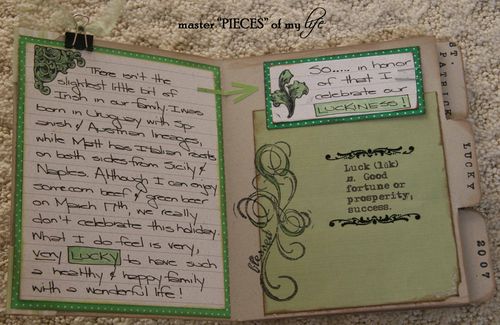 master "PIECES" of my life
There isn't the
slightest little bit of
Irish in our family. I was
born in Uruguay with Sp-
anish & Austrian lineages,
while Matt has Italian roots
on both sides from Sicily &
Naples. Although I can enjoy
some corn beef & green beer
on March 17th, we really
don't celebrate this holiday.
What I do feel is very,
very LUCKY to have such
a healthy & happy family
with a wonderful life!
SO..... in honor
of that I
celebrate our
LUCKINESS!
Luck (luk)
n. Good
fortune or
prosperity;
success.
blessed
ST. PATRICK
LUCKY
2007